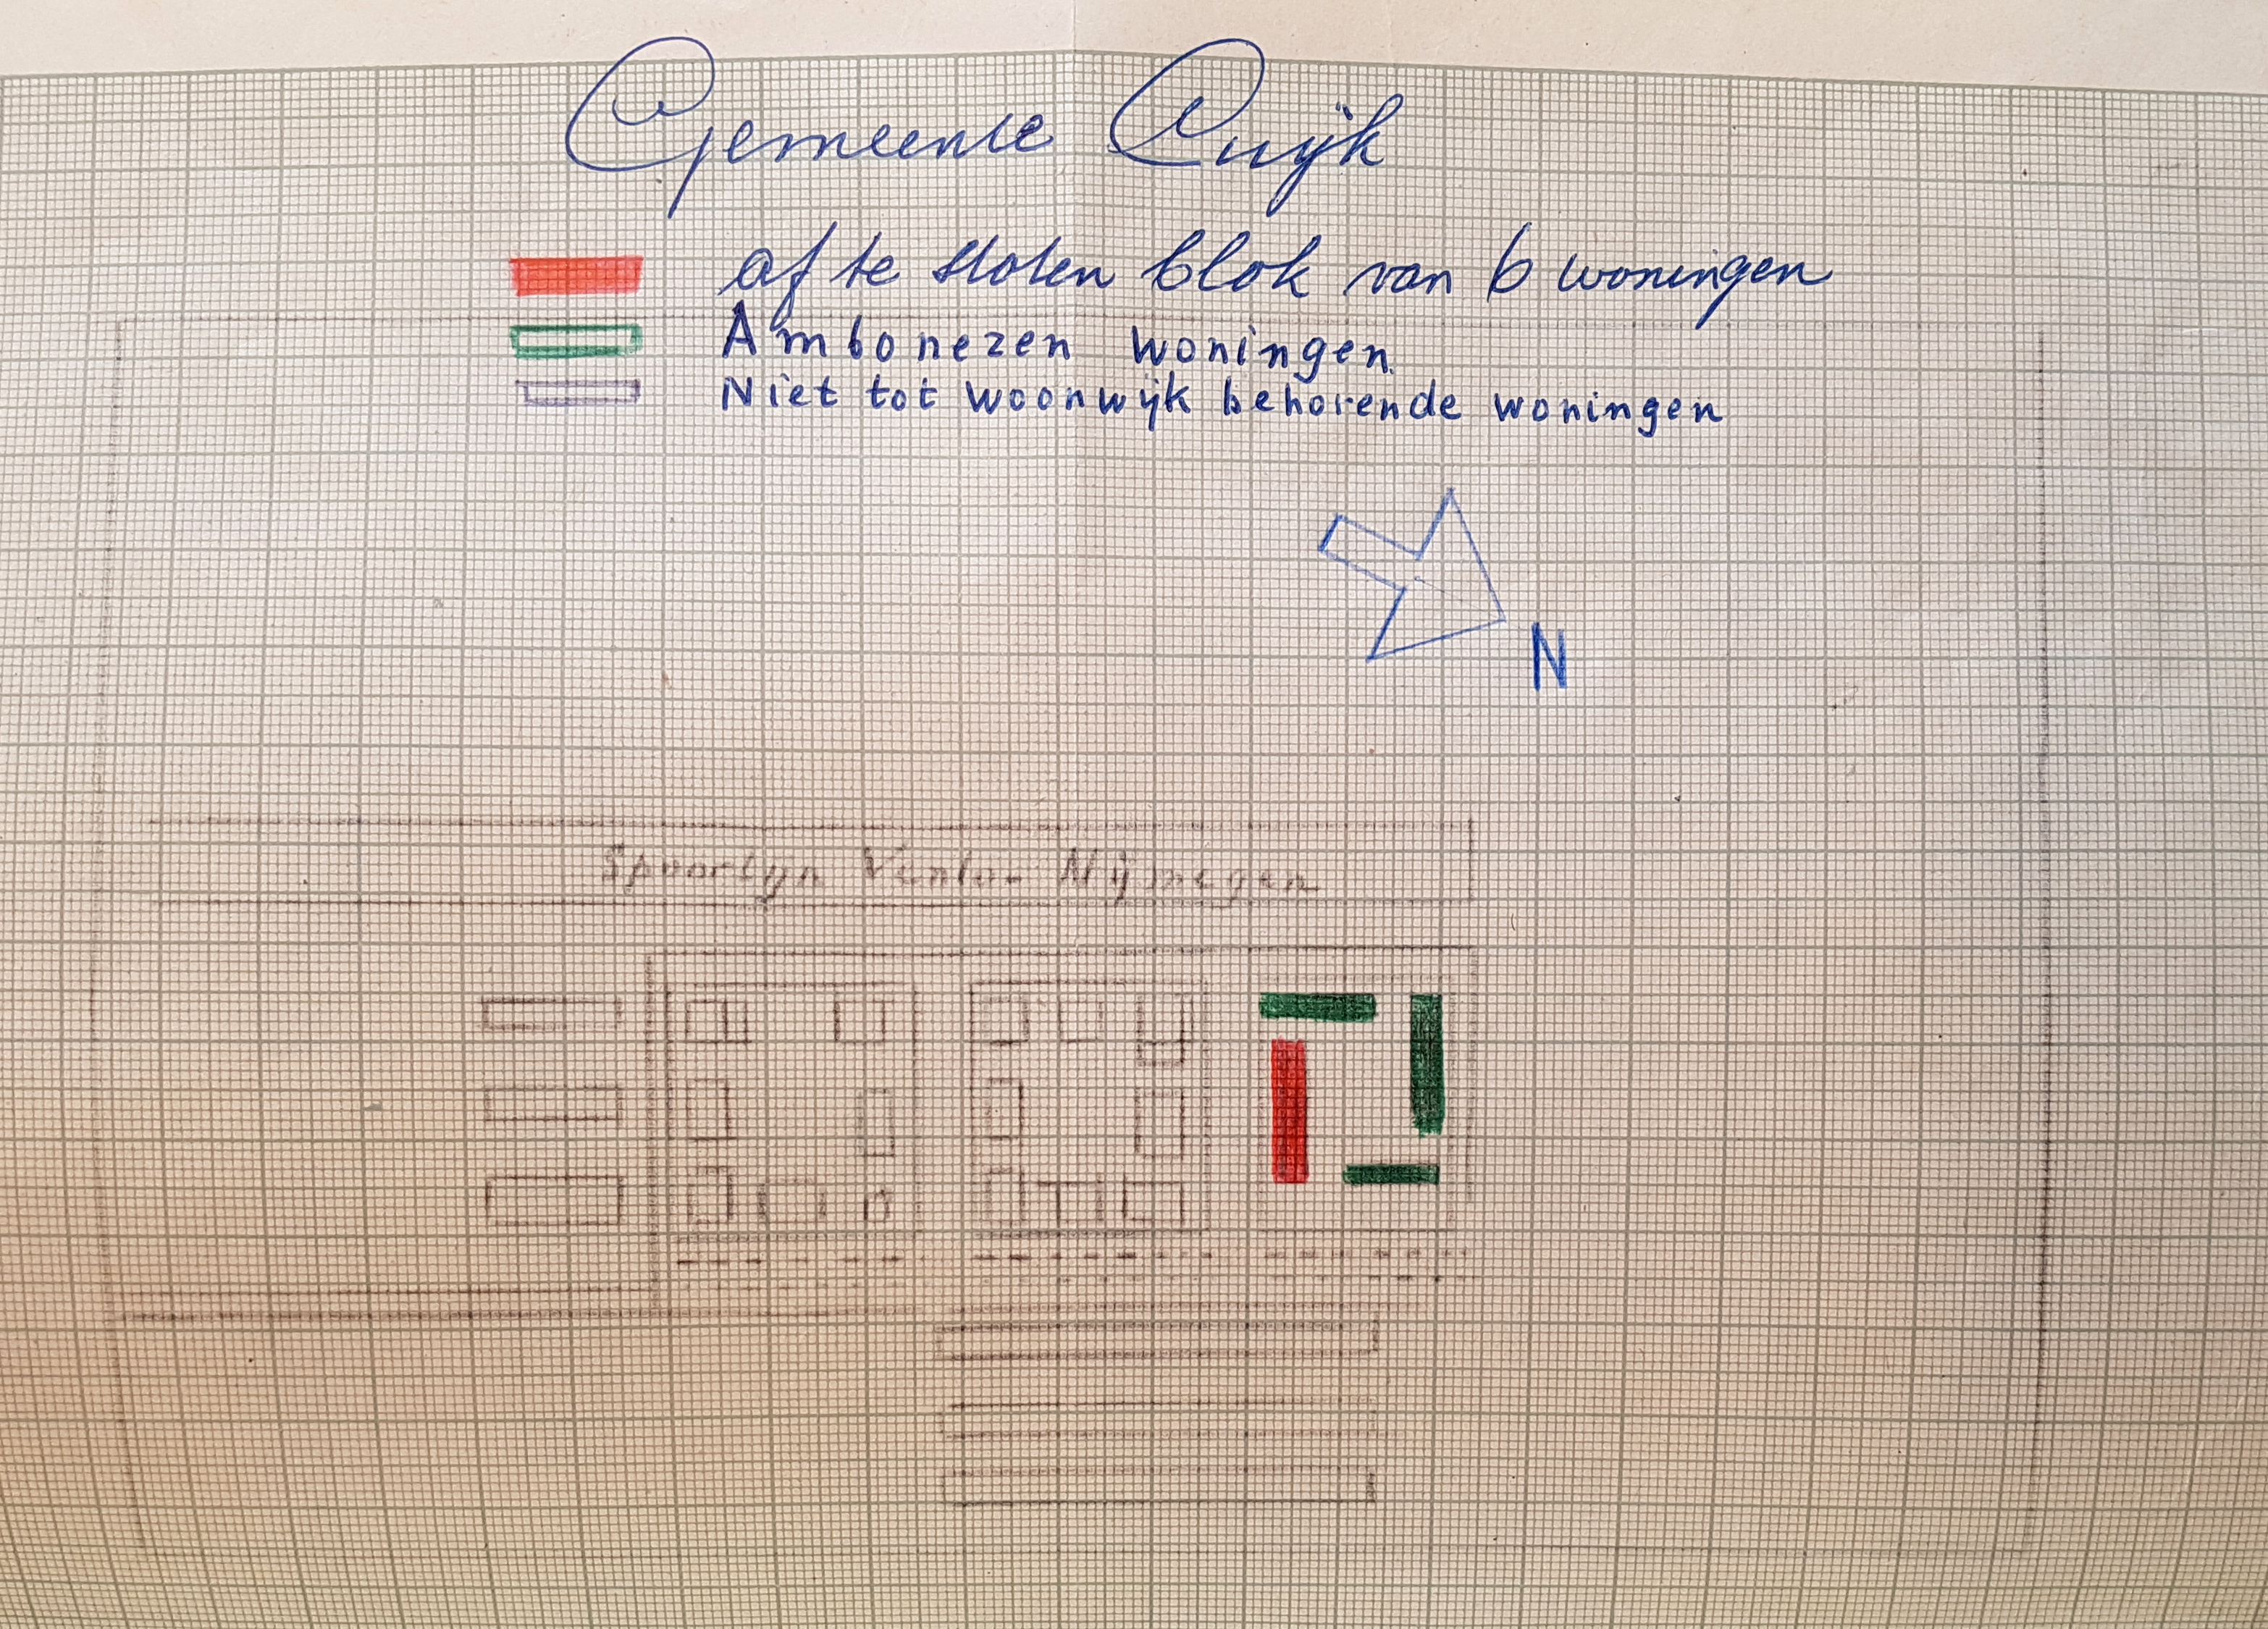 Gemeente Cuijk
af te stoten blok van 6 woningen
Ambonezen woningen
Niet tot woonwijk behorende woningen
N
Spoorlijn Venlo - Nijmegen